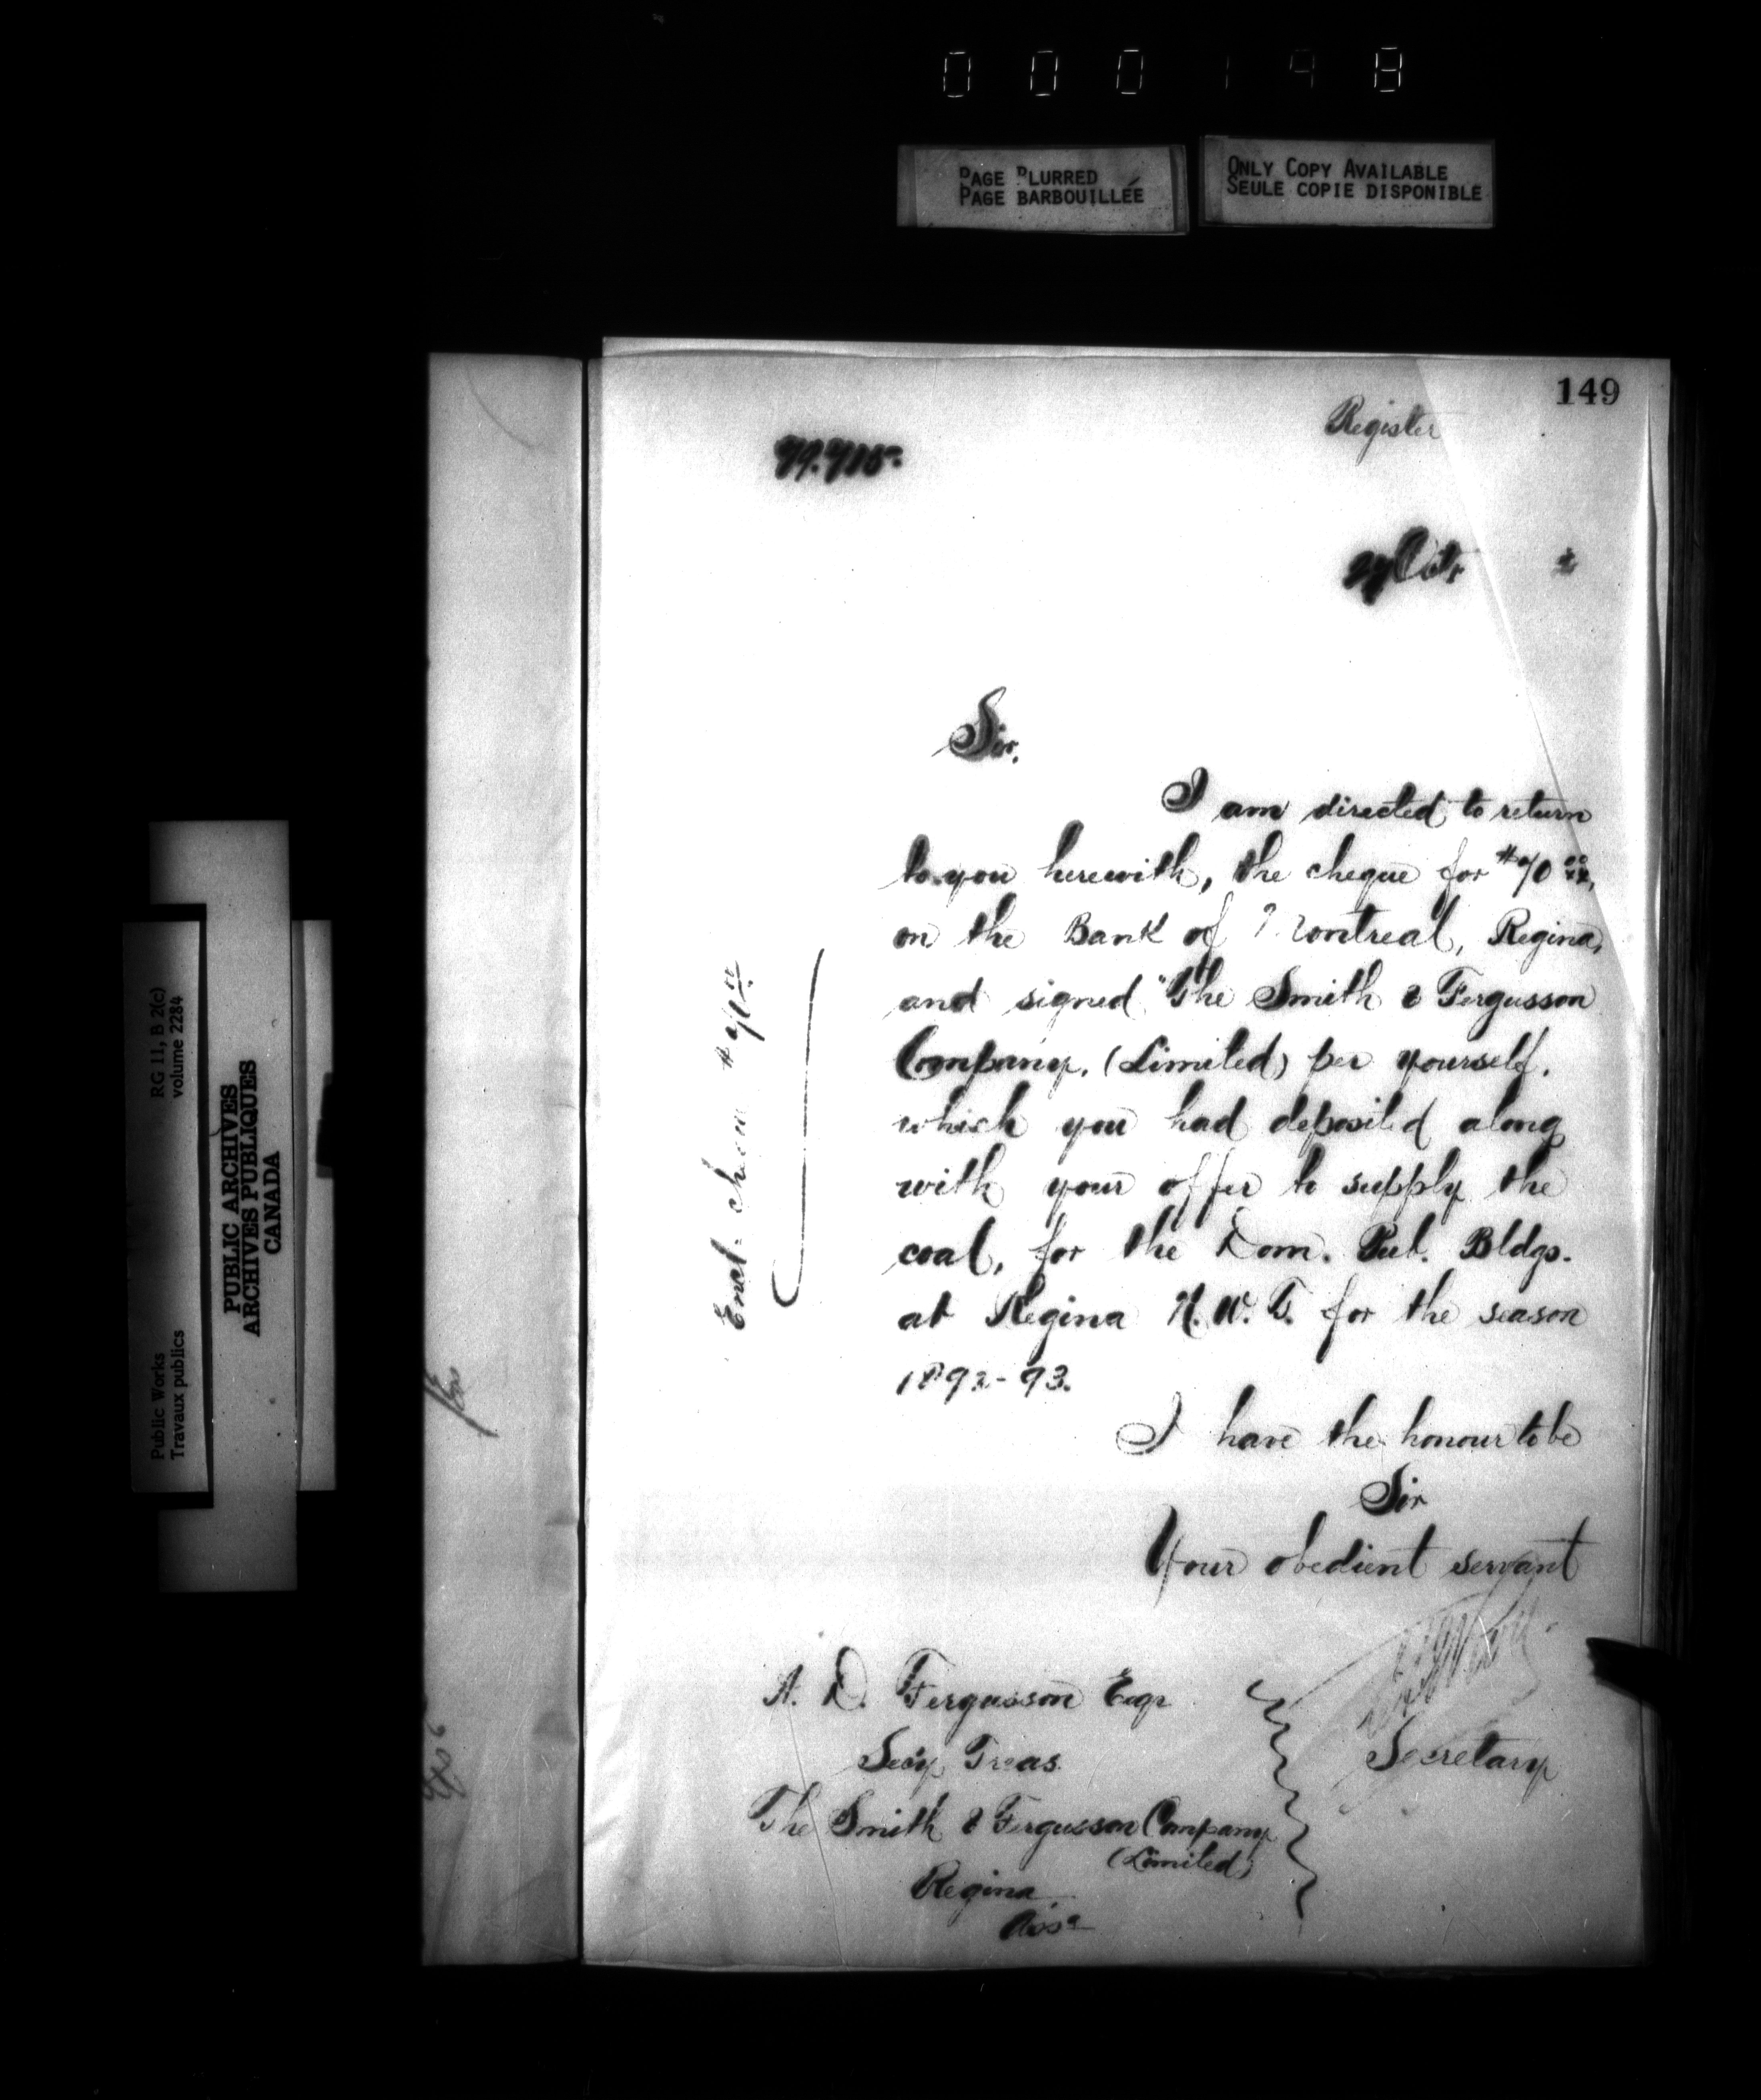 000148
PAGE BLURRED
PAGE BARBOUILLÉE
ONLY COPY AVAILABLE
SEULE COPIE DISPONIBLE
149
Register
27 Oct
2
Sir,
I am directed to return
to you herewith, the cheque for $70 00/xx,
on the Bank of Montreal, Regina,
and signed "The Smith & Fergusson
Company, (Limited) per yourself,
which you had deposited along
with your offer to supply the
coal, for the Dom. Pub. Bldgs.
at Regina N.W.T. for the season
1892-93.
I have the honour to be
Sir
Your obedient servant
Secretary
A. D. Fergusson Esqr
Secy Treas.
The Smith & Fergusson Company
(Limited)
Regina
Assa
Encl. $70
Public Works
Travaux publics
RG 11, B 2(c)
volume 2284
PUBLIC ARCHIVES
ARCHIVES PUBLIQUES
CANADA